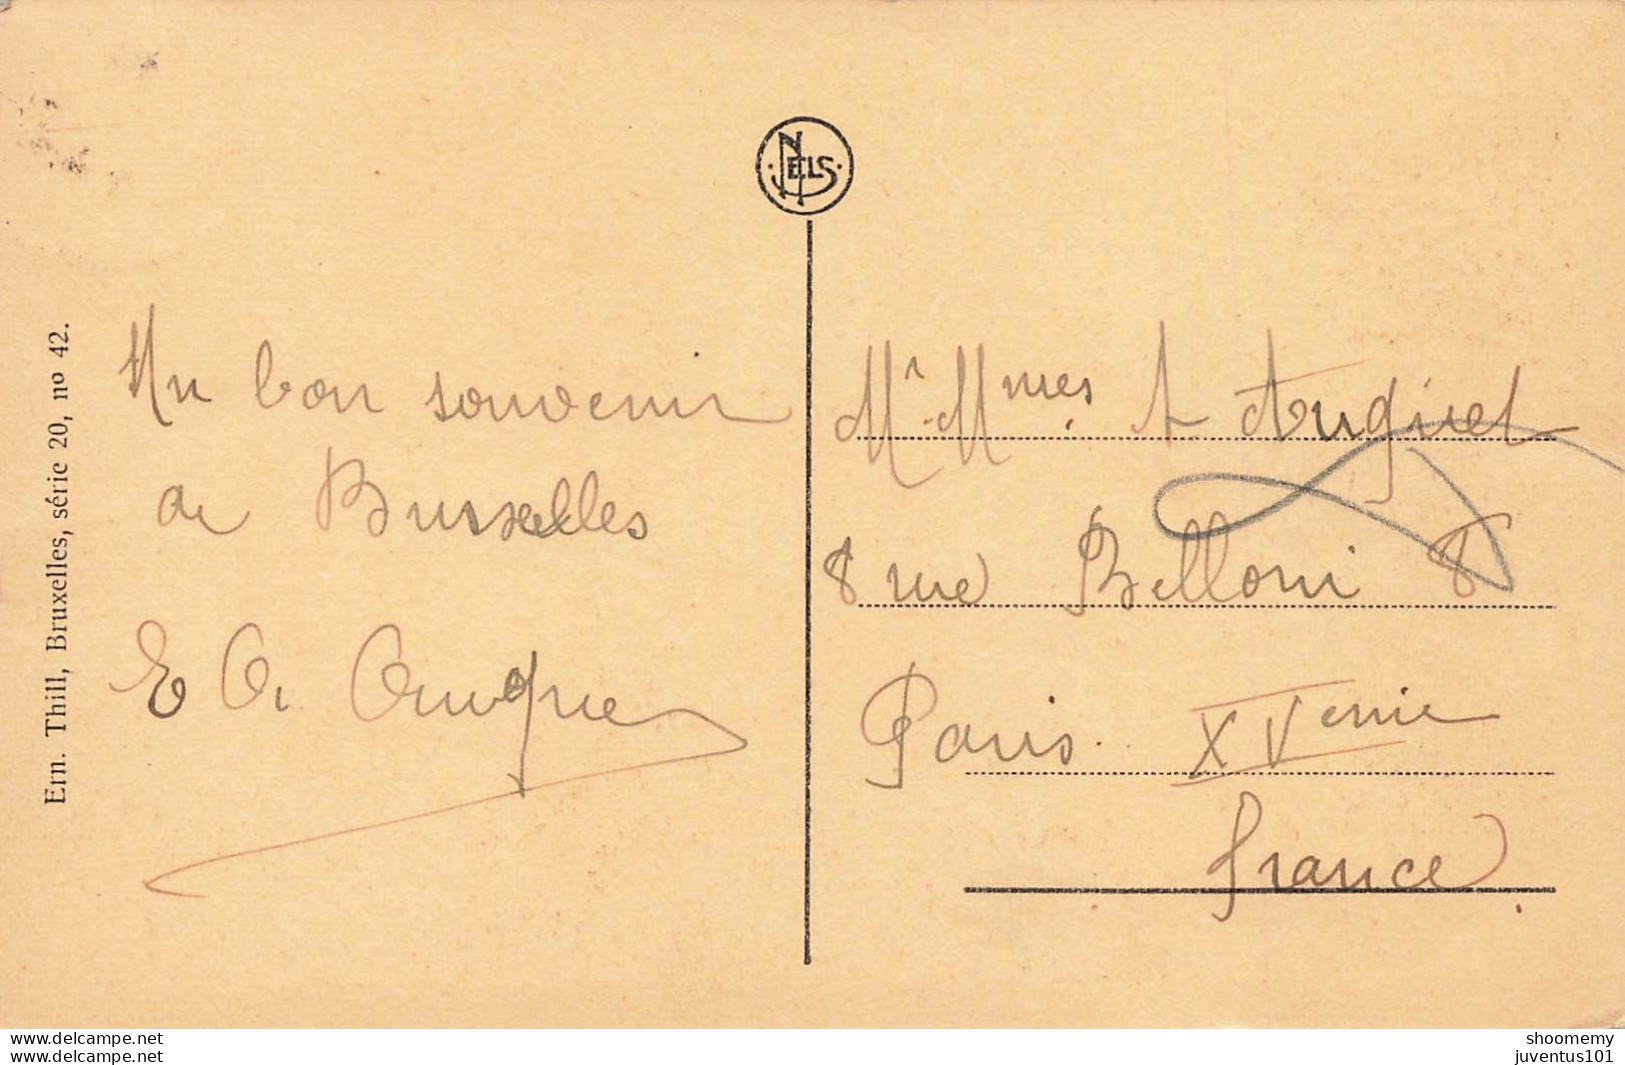 NELS
Ern. Thill, Bruxelles, série 20, no 42.
Un bon souvenir
de Bruxelles
E
Mr. Mmes. A Auguet
8 rue Belloni 8
Paris. XVeme
france.
www.delcampe.net
www.delcampe.net
shoomemy
juventus101